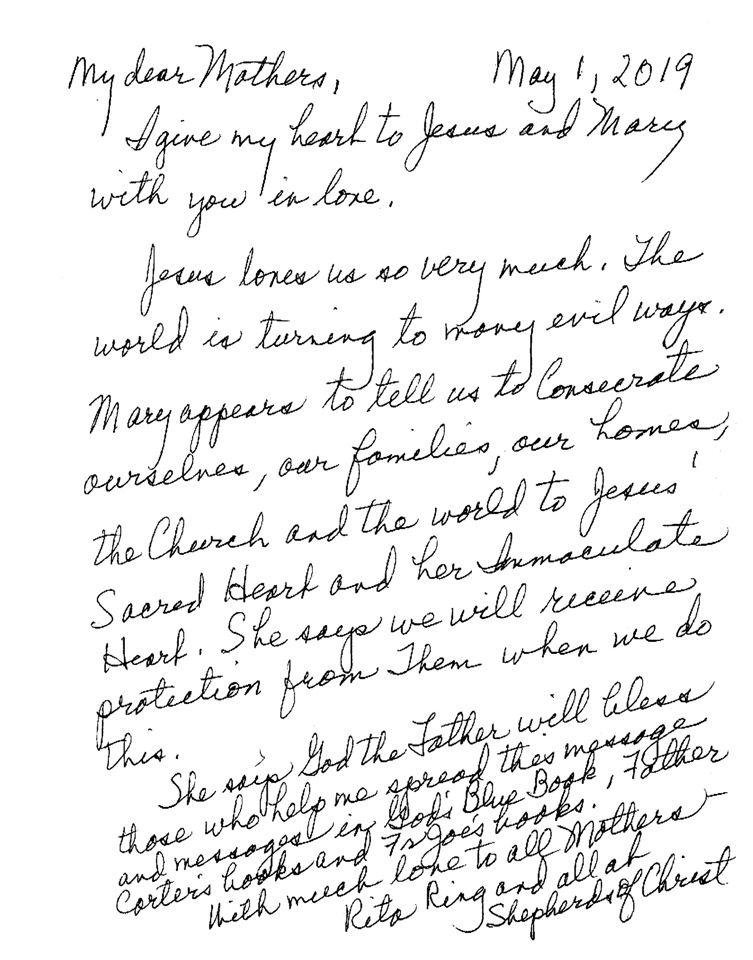 My dear Mothers, May 1, 2019
I give my heart to Jesus and Mary
with you in love.
Jesus loves us so very much. The
world is turning to many evil ways.
Mary appears to tell us to Consecrate
ourselves, our families, our homes,
the Church and the world to Jesus'
Sacred Heart and her Immaculate
Heart. She says we will receive
protection from Them when we do
this.
She says God the Father will bless
those who help me spread this message
and messages in God's Blue Book, Father
Carter's books and Fr Joe's books.
With much love to all Mothers -
Rita Ring and all at
Shepherds of Christ